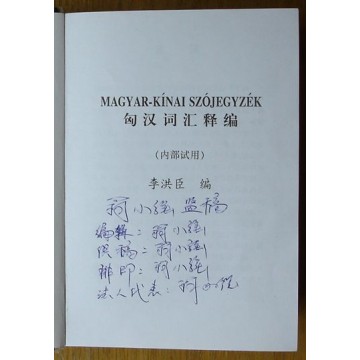 MAGYAR-KÍNAI SZÓJEGYZÉK
匈汉词汇释编
(内部试用)
李洪臣 编
小强 监稿
编辑: 小强
供稿: 小强
排印: 小强
法人代表: